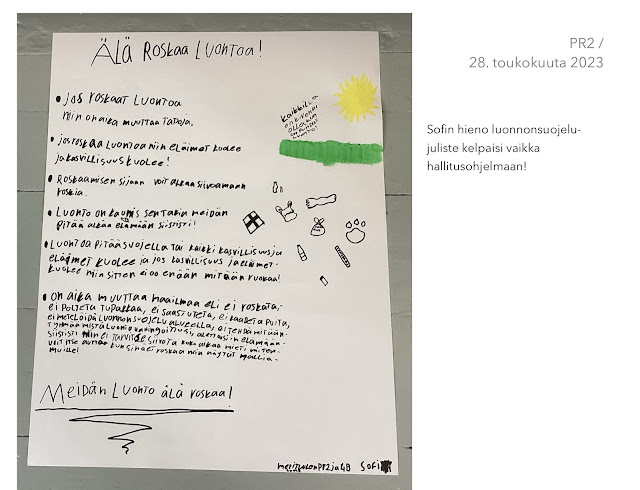 ÄLÄ ROSKAA LUONTOA!
• JOS ROSKAAT LUONTOA
niin on aika muuttaa tapoja.
• jos roskaa Luontoa niin eläimet kuolee
ja kasvillisuus kuolee!
• Roskaamisen sijaan voit alkaa siivoamaan
roskia.
• LUONTO on kaunis sen takia meidän
pitää alkaa elämään siististi!
• LUONTOA PITÄÄ SUOJELLA tai kaikki kasvillisuus ja
eläimet kuolee ja jos kasvillisuus ja eläimet
kuolee niin sitten ei oo enään mitään ruokaa!
• on aika muuttaa maailmaa eli ei roskata,
ei polteta tupakkaa, ei saastuteta, ei kaadeta puita,
ei metelöidä Luonnonsuojelu alueella, ei tehdä mitään
siististi niin ei tarvitse siivota koko aikaa
kun sinä et roskaa niin näytät mallia
muille!
MEIDÄN LUONTO älä roskaa!
kaikilla
PR2 ja 4B Sofi
PR2 /
28. toukokuuta 2023
Sofin hieno luonnonsuojelu-
juliste kelpaisi vaikka
hallitusohjelmaan!